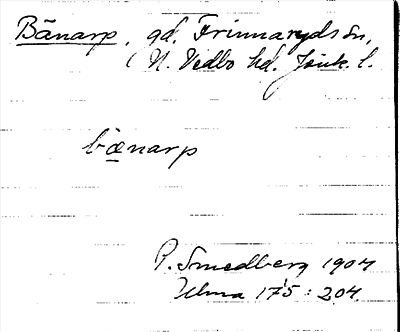 Bänarp, gd. Frinnaryds sn,
N. Vedbo hd. Jönk. l.
bænarp
P. Smedberg 1904
Ulma 175 : 204.